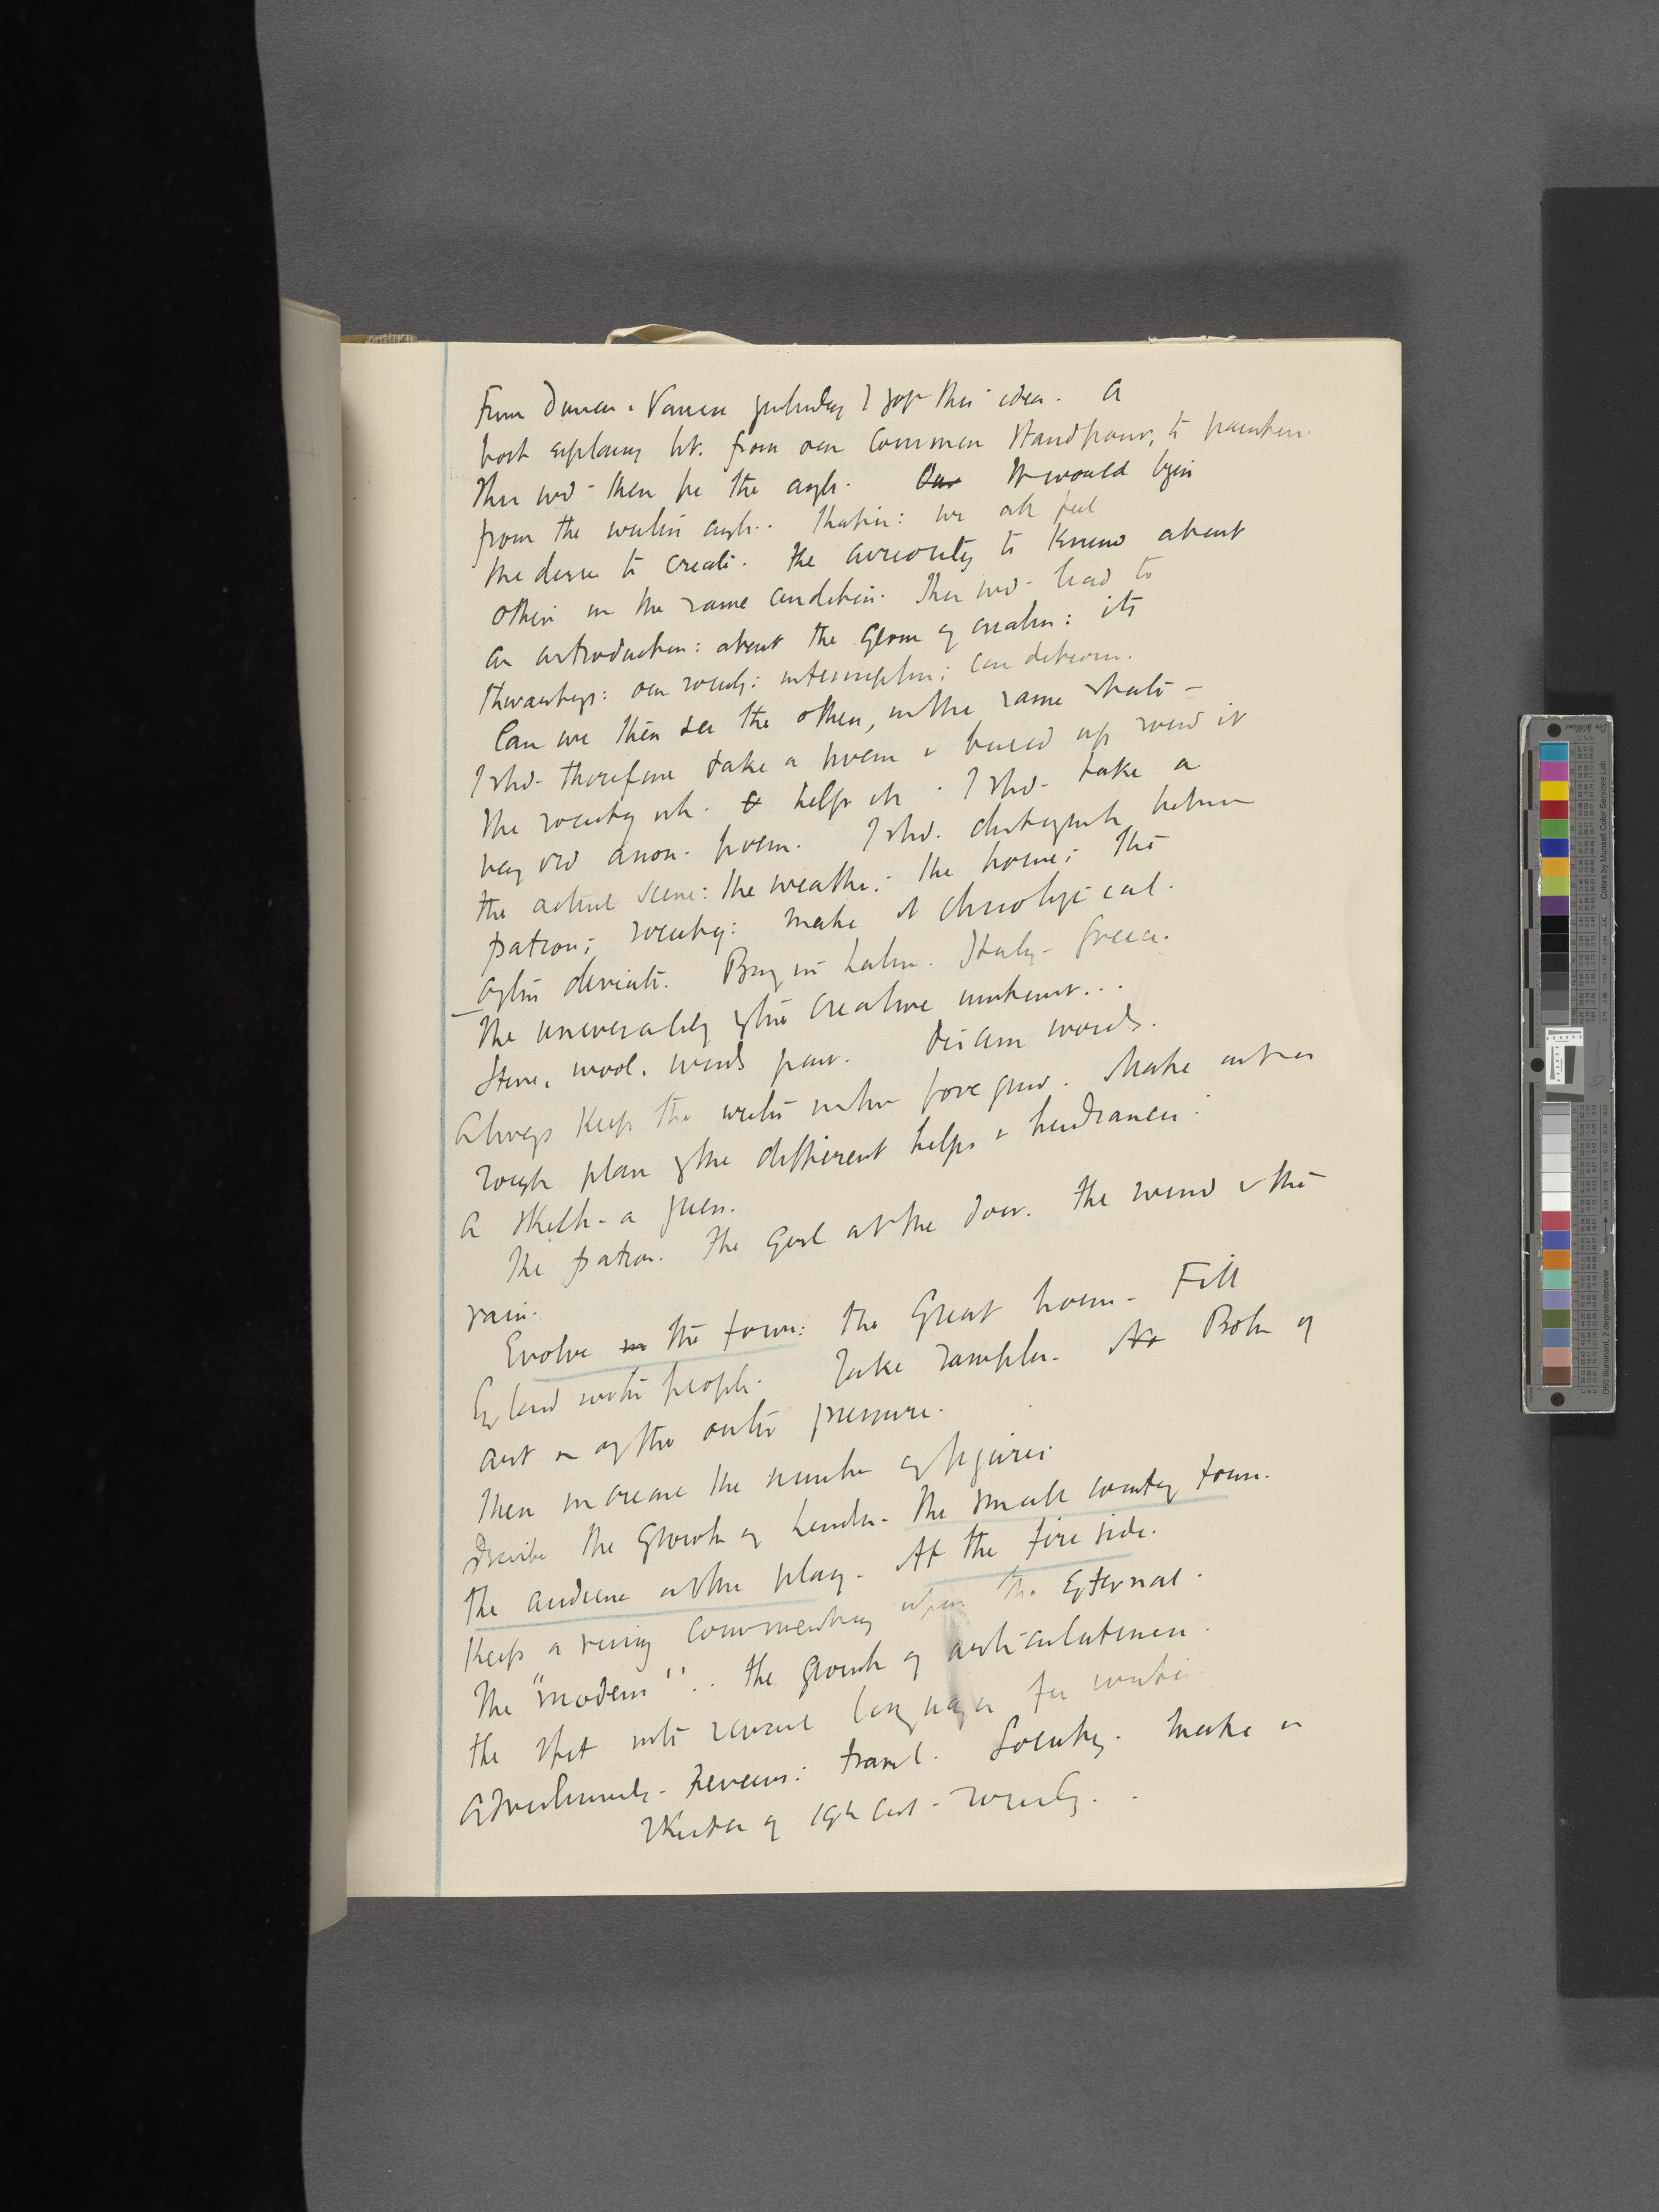 From Duncan & Vanessa yesterday I got this idea. A
book explaining lit. from our common standpoint, to painters.
This wd. then be the angle. Our It would begin
from the writers angle.. That is: we all feel
the desire to create. The curiosity to know about
others in the same condition. This wd. lead to
an introduction: about the germ of creation: its
thwartings: our society: interruption: conditions.
Can we then see the others, in the same state -
I shd. therefore take a poem & build up round it
the society wh. helps it. I shd. take a
very old anon. poem. I shd. distinguish between
the actual scene: the weather: the house; the
patron; society: make it chronological.
often deviate. Bring in Latin. Italy - Greece.
The universality of the creative instinct...
Stone, wool, words paint. Dream words.
Always keep the writer in the foreground. Make out a
rough plan of the different helps & hindrances:
A sketch - a
The patron. The Girl at the door. The wind & the
rain.
Evolve in the town: the Great house. Fill
England with people. Take samples. Both of
art & of the outer pressure.
Then increase the number of figures
Describe the growth of London. The small country town.
The audience at the play. At the fire side.
Keep a running commentary upon the External.
The "modern".. the growth of articulateness.
the
Reviews: travel. Society. Make a
sketch of society..
D50 Illuminant, 2 degree observer
Colors by Munsell Color Services Lab